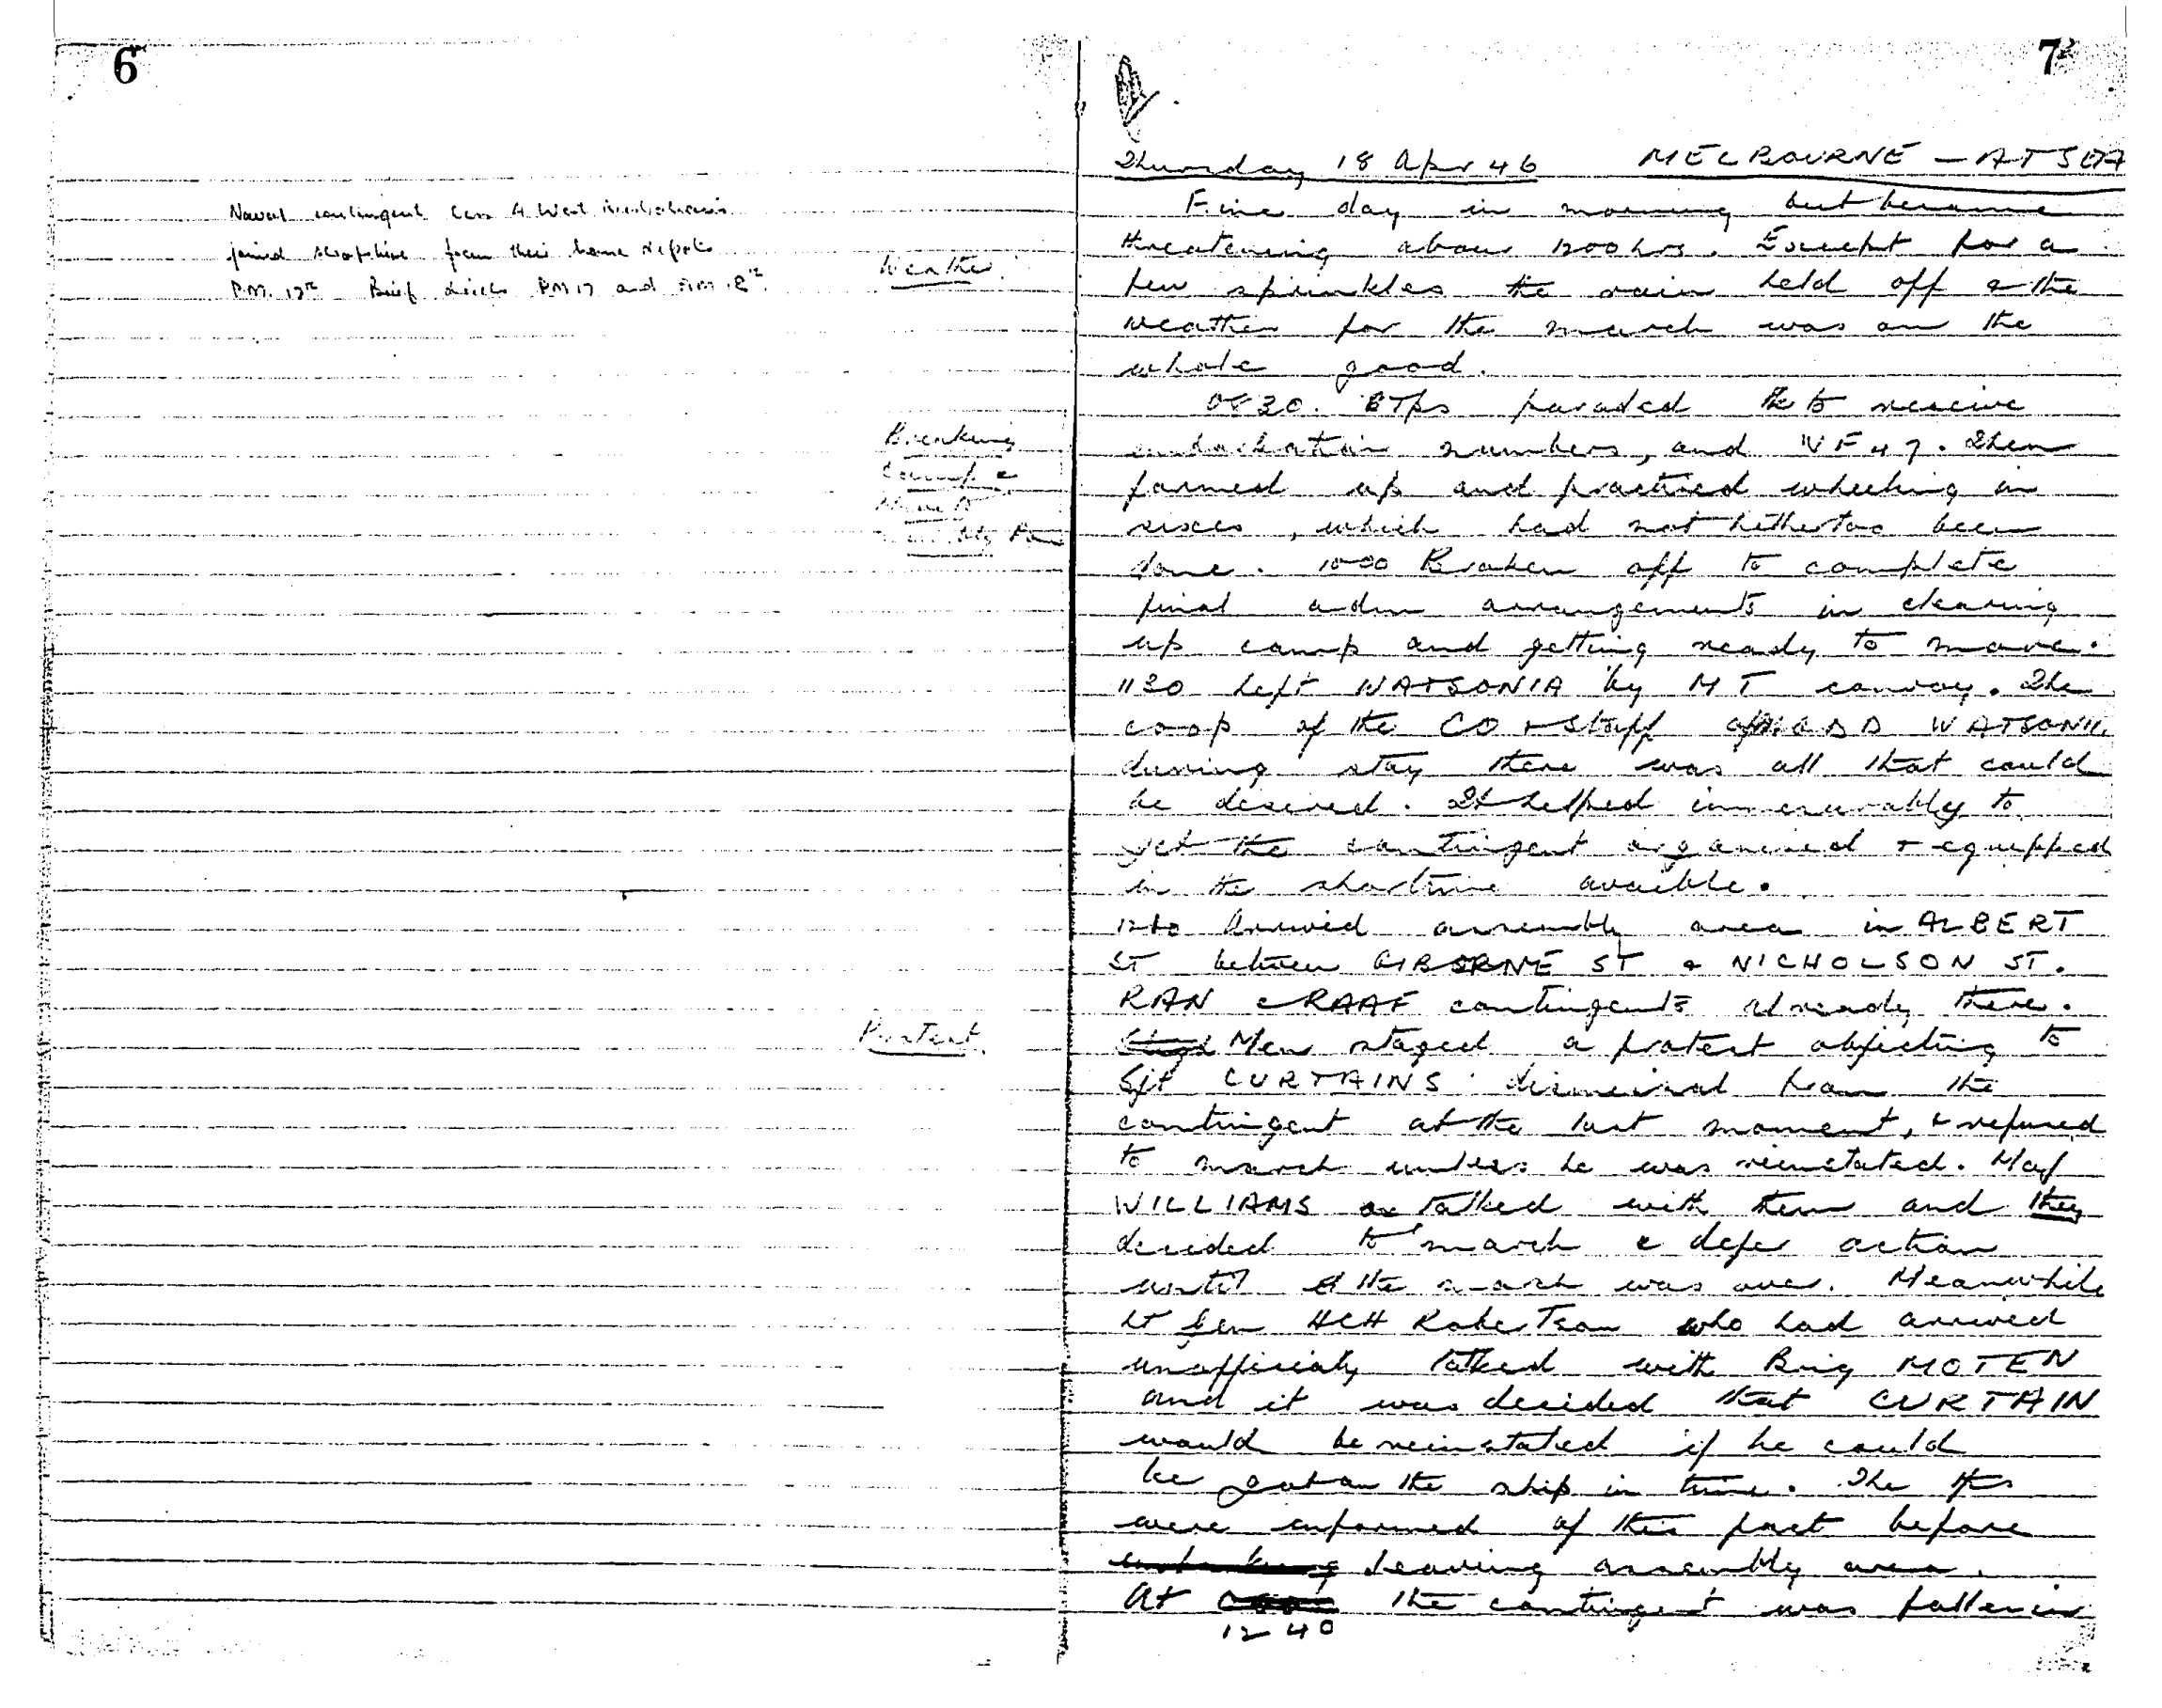 6
Naval contingent less 4 West Australians
joined Shropshire from their home depots
P.M. 17th Brief drills PM 17 and A.M. 18th.
Weather.
Breaking
Camp &
Move to
Assembly
Protest.
7
Thursday 18 Apr 46 MELBOURNE - AT SEA
Fine day in morning but became
threatening about 1200 hrs. Except for a
few sprinkles the rain held off & the
weather for the march was on the
whole good.
0830. Tps paraded to receive
embarkation numbers, and VF47. Then
formed up and practised wheeling in
sixes, which had not hithertoo been
done. 1000 Broken off to complete
final adm arrangements in clearing
up camp and getting ready to move.
1130 Left WATSONIA by MT convoy. The
coop of the CO & staff of WATSONIA
during stay there was all that could
be desired. It helped immesurably to
get the contingent organised & equipped
in the shortime availble.
Arrived assembly area in ALBERT
ST between GISBORNE ST & NICHOLSON ST.
RAN & RAAF contingents already there.
Men staged a protest objecting to
Sjt CURTAINS dismissal from the
contingent at the last moment, & refused
to march unless he was reinstated. Maj
WILLIAMS talked with them and they
decided to march & defer action
until the march was over. Meanwhile
Lt Gen HCH Robertson who had arrived
unofficialy talked with Brig MOTEN
and it was decided that CURTAIN
would be reinstated if he could
be got on the ship in time. The tps
were informed of this fact before
embarking leaving assembly area.
At 1240 the contingent was fallen in